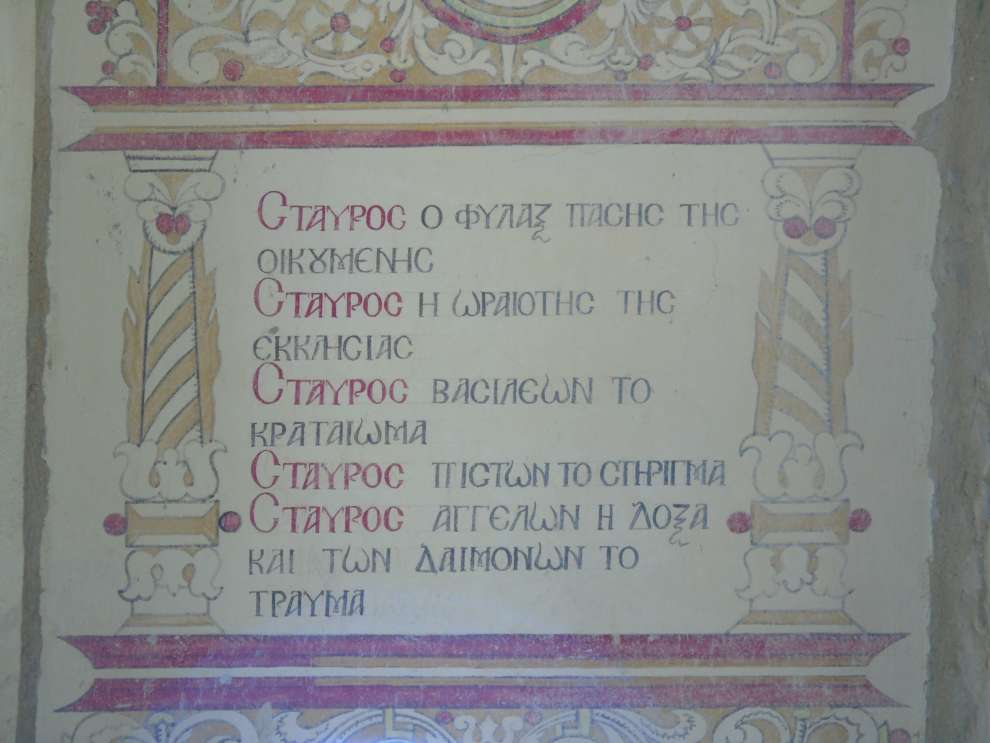 Σταυρος ο φυλαξ πασης της
οικȣμενης
Σταυρος η ωραιοτης της
εκκλησιας
Σταυρος βασιλεων το
κραταιωμα
Σταυρος πιστων το στηριγμα
Σταυρος αγγελων η δοξα
και των δαιμονων το
τραυμα